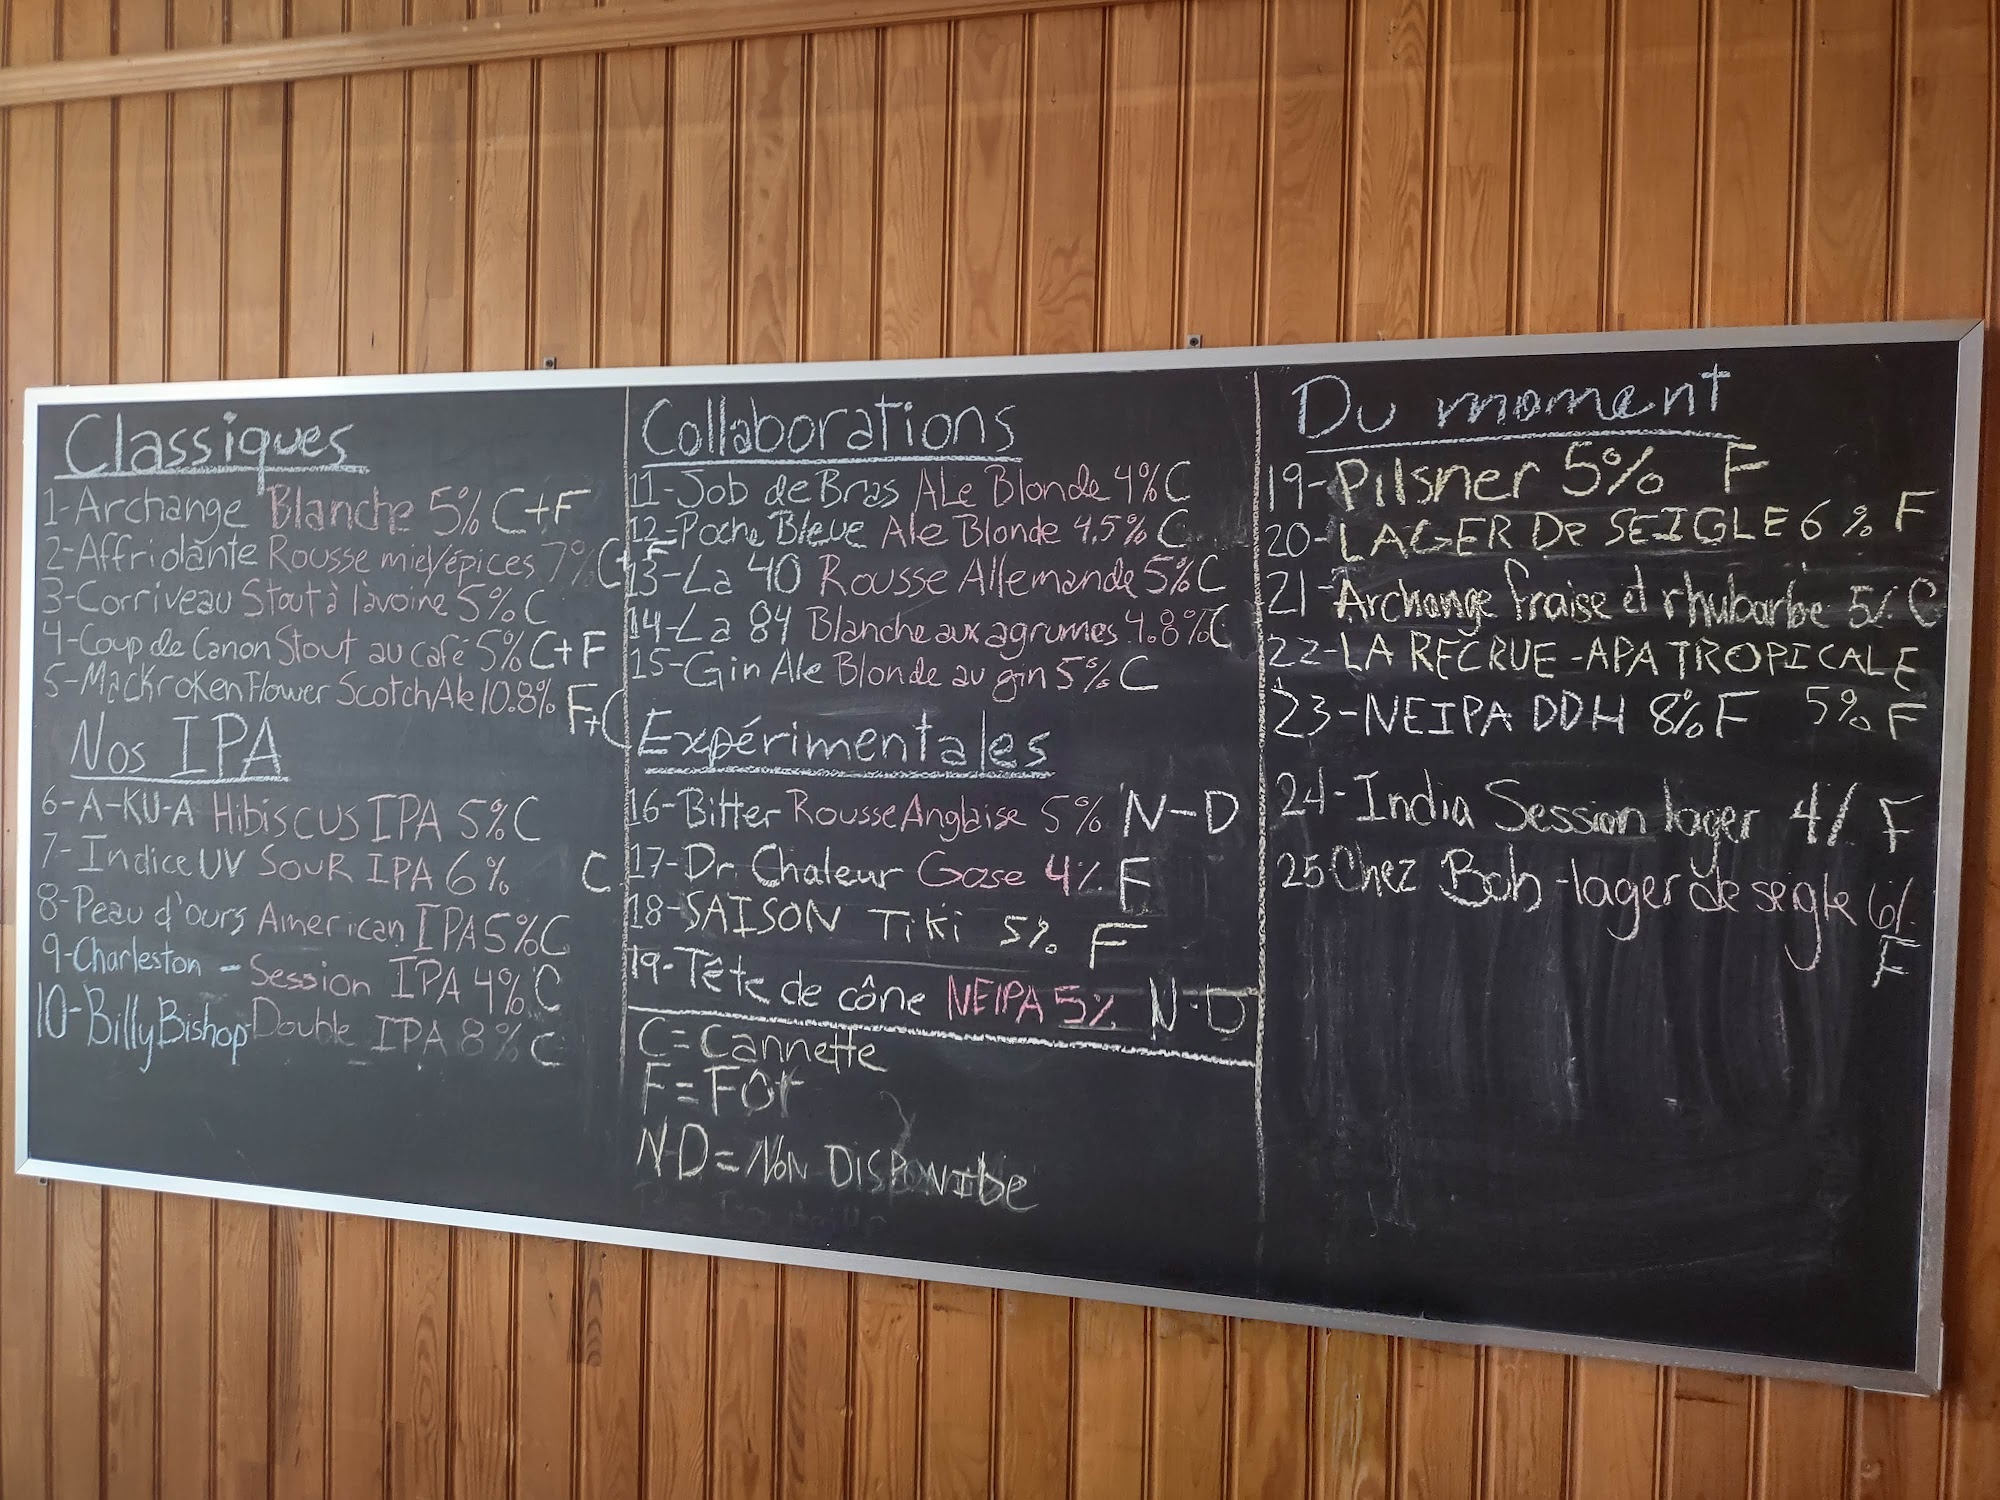 Classiques
1-Archange Blanche 5% C+F
2-Affriolante Rousse miel/épices 7% C+F
3-Corriveau Stout à l'avoine 5% C
4-Coup de Canon Stout au café 5% C+F
5-MacKroken Flower Scotch Ale 10.8% F+C
Nos IPA
6-A-KU-A Hibiscus IPA 5% C
7-Indice UV SOUR IPA 6% C
8-Peau d'ours American IPA 5% C
9-Charleston - Session IPA 4% C
10-Billy Bishop-Double IPA 8% C
Collaborations
11-Job de Bras ALe Blonde 4% C
12-Poche Bleue Ale Blonde 4.5% C
13-La 40 Rousse Allemande 5% C
14-La 84 Blanche aux agrumes 4.8% C
15-Gin Ale Blonde au gin 5% C
Expérimentales
16-Bitter Rousse Anglaise 5% N-D
17-Dr. Chaleur Gose 4% F
18-SAISON Tiki 5% F
19-Tête de cône NEIPA 5% N-D
C = Cannette
F = Fût
N-D = NON DISPONIBLE
Du moment
19-Pilsner 5% F
20-LAGER De SEIGLE 6% F
21-Archange fraise et rhubarbe 5% C
22-LA RECRUE-APA TROPICALE
5% F
23-NEIPA DDH 8% F
24-India Session lager 4% F
25 Chez Bob-lager de seigle 6%
F